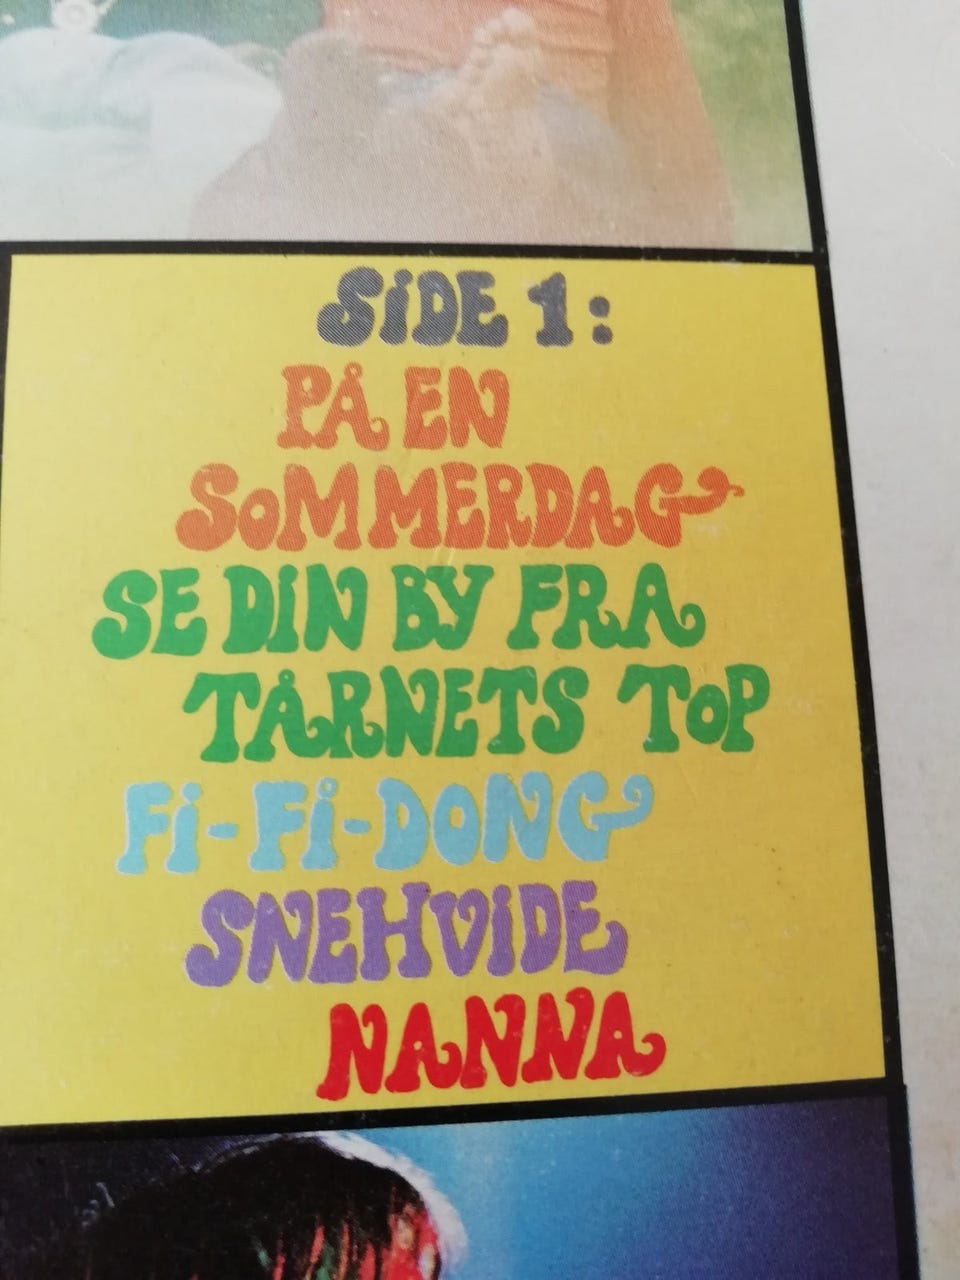 SiDE 1:
PÅ EN
SOMMERDAG
SE DiN BY FRA
TÅRNETS TOP
Fi-Fi-DONG
SNEHViDE
NANNA